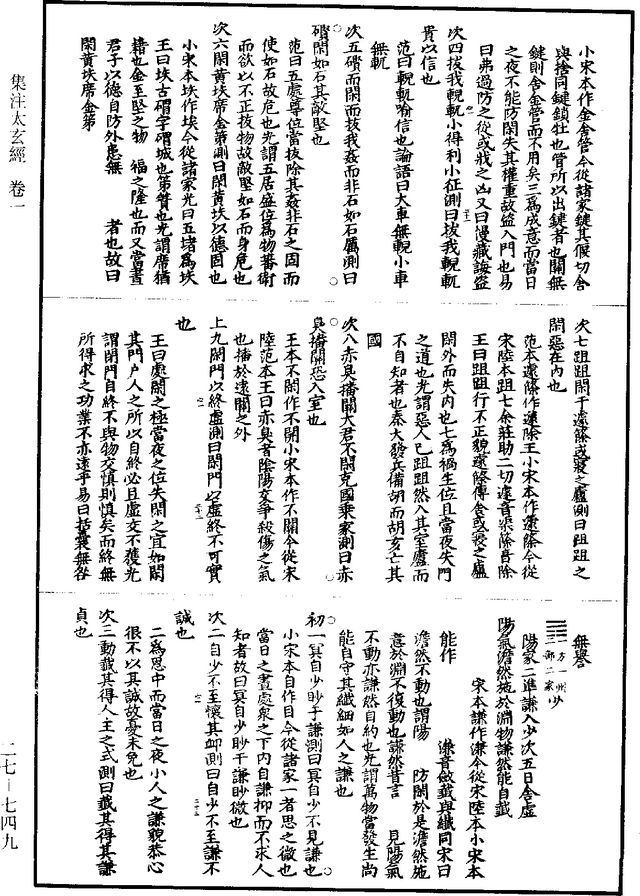 小宋本作金舍管今從諸家鍵其偃切舍
與捨同鍵鎖牡也管所以出鍵者也關無
鍵則舍金管而不用矣三爲成意而當日
之夜不能防閑失其權重故盜入門也易
曰弗過防之從或戕之凶又曰慢藏誨盜
次四拔我輗軏小得利小征測曰拔我輗軏
貴以信也
范曰輗軏喻信也論語曰大車無輗小車
無軏
次五礥而閑而拔我姦而非石如石厲測曰
礥閑如石其敵堅也
范曰五處尊位當拔除其姦非石之固而
使如石故危也光謂五居盛位爲物蕃衛
而欲以不正拔物故敵堅如石而身危也
次六閑黃垁席金第測曰閑黃垁以德固也
小宋本垁作埃今從諸家光曰五堵爲垁
王曰垁古雉字謂城也第簀也光謂席猶
籍也金至堅之物 福之隆也而又當晝
君子以德自防外患無 者也故曰
閑黃垁席金第
次七跙跙閑于遽篨或寢之廬測曰跙跙之
閑惡在內也
范本遽篨作遽除王小宋本作蘧篨今從
宋陸本跙七余莊助二切遽音渠篨音除
王曰跙跙行不正貌遽篨傳舍或寢之廬
閑外而失內也七爲禍生位且當夜失門
之道也光謂惡人已跙跙然入其室廬而
不自知者也秦大發兵備胡而胡亥亡其
國
次八赤臭播關大君不閑克國乘家測曰赤
臭播關恐入室也
王本不閑作不開小宋本作不關今從宋
陸范本王曰赤臭者陰陽交爭殺傷之氣
也播於遠關之外
上九閑門以終虛測曰閑門以虛終不可實
也
王曰處閑之極當夜之位失閑之宜如閑
其門户人之所以自終必且虛文不獲光
謂閑門自終不與物交慎則慎矣而終無
所得求之功業不亦遠乎易曰括囊無咎
無譽
一方一州
三部二家
少
陽家二準謙入少次五日舍虛
陽氣澹然施於淵物謙然能自韱
宋本謙作溓今從宋陸本小宋本
能作 溓音斂韱與纖同宋曰
澹然不動也謂陽 防閑於是澹然施
意於淵不復動也謙然昔言 見陽氣
不動亦謙然自約也光謂萬物當發生尚
能自守其纖細如人之謙也
初一冥自少眇于謙測曰冥自少不見謙也
小宋本自作目今從諸家一者思之微也
當日之晝處衆之下內自謙抑而不求人
知者故曰冥自少眇于謙眇微也
次二自少不至懷其卹測曰自少不至謙不
誠也
二爲思中而當日之夜小人之謙貌恭心
很不以其誠故憂未免也
次三動韱其得人主之式測曰韱其得其謙
貞也
集注太玄經 卷一
二七—七四九